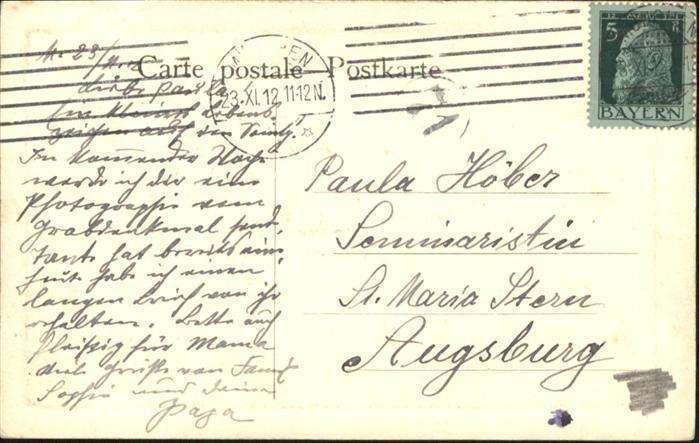 M. 23/11.12
Carte postale – Postkarte
MÜNCHEN
23.XI.12.11-12N.
5
BAYERN
Liebe Paula!
Ein kleines Lebens
zeichen auf den Sonntg.
In kommender Woche
werde ich dir eine
Photographie vom
Grabdenkmal send.
Tante hat bereits eine,
heute habe ich einen
langen Brief von ihr
erhalten. Bette auch
fleißig für Mama
Viele Grüße von
Sophie und deinem
Papa
Paula Höber
Seminaristin
St. Maria Stern
Augsburg